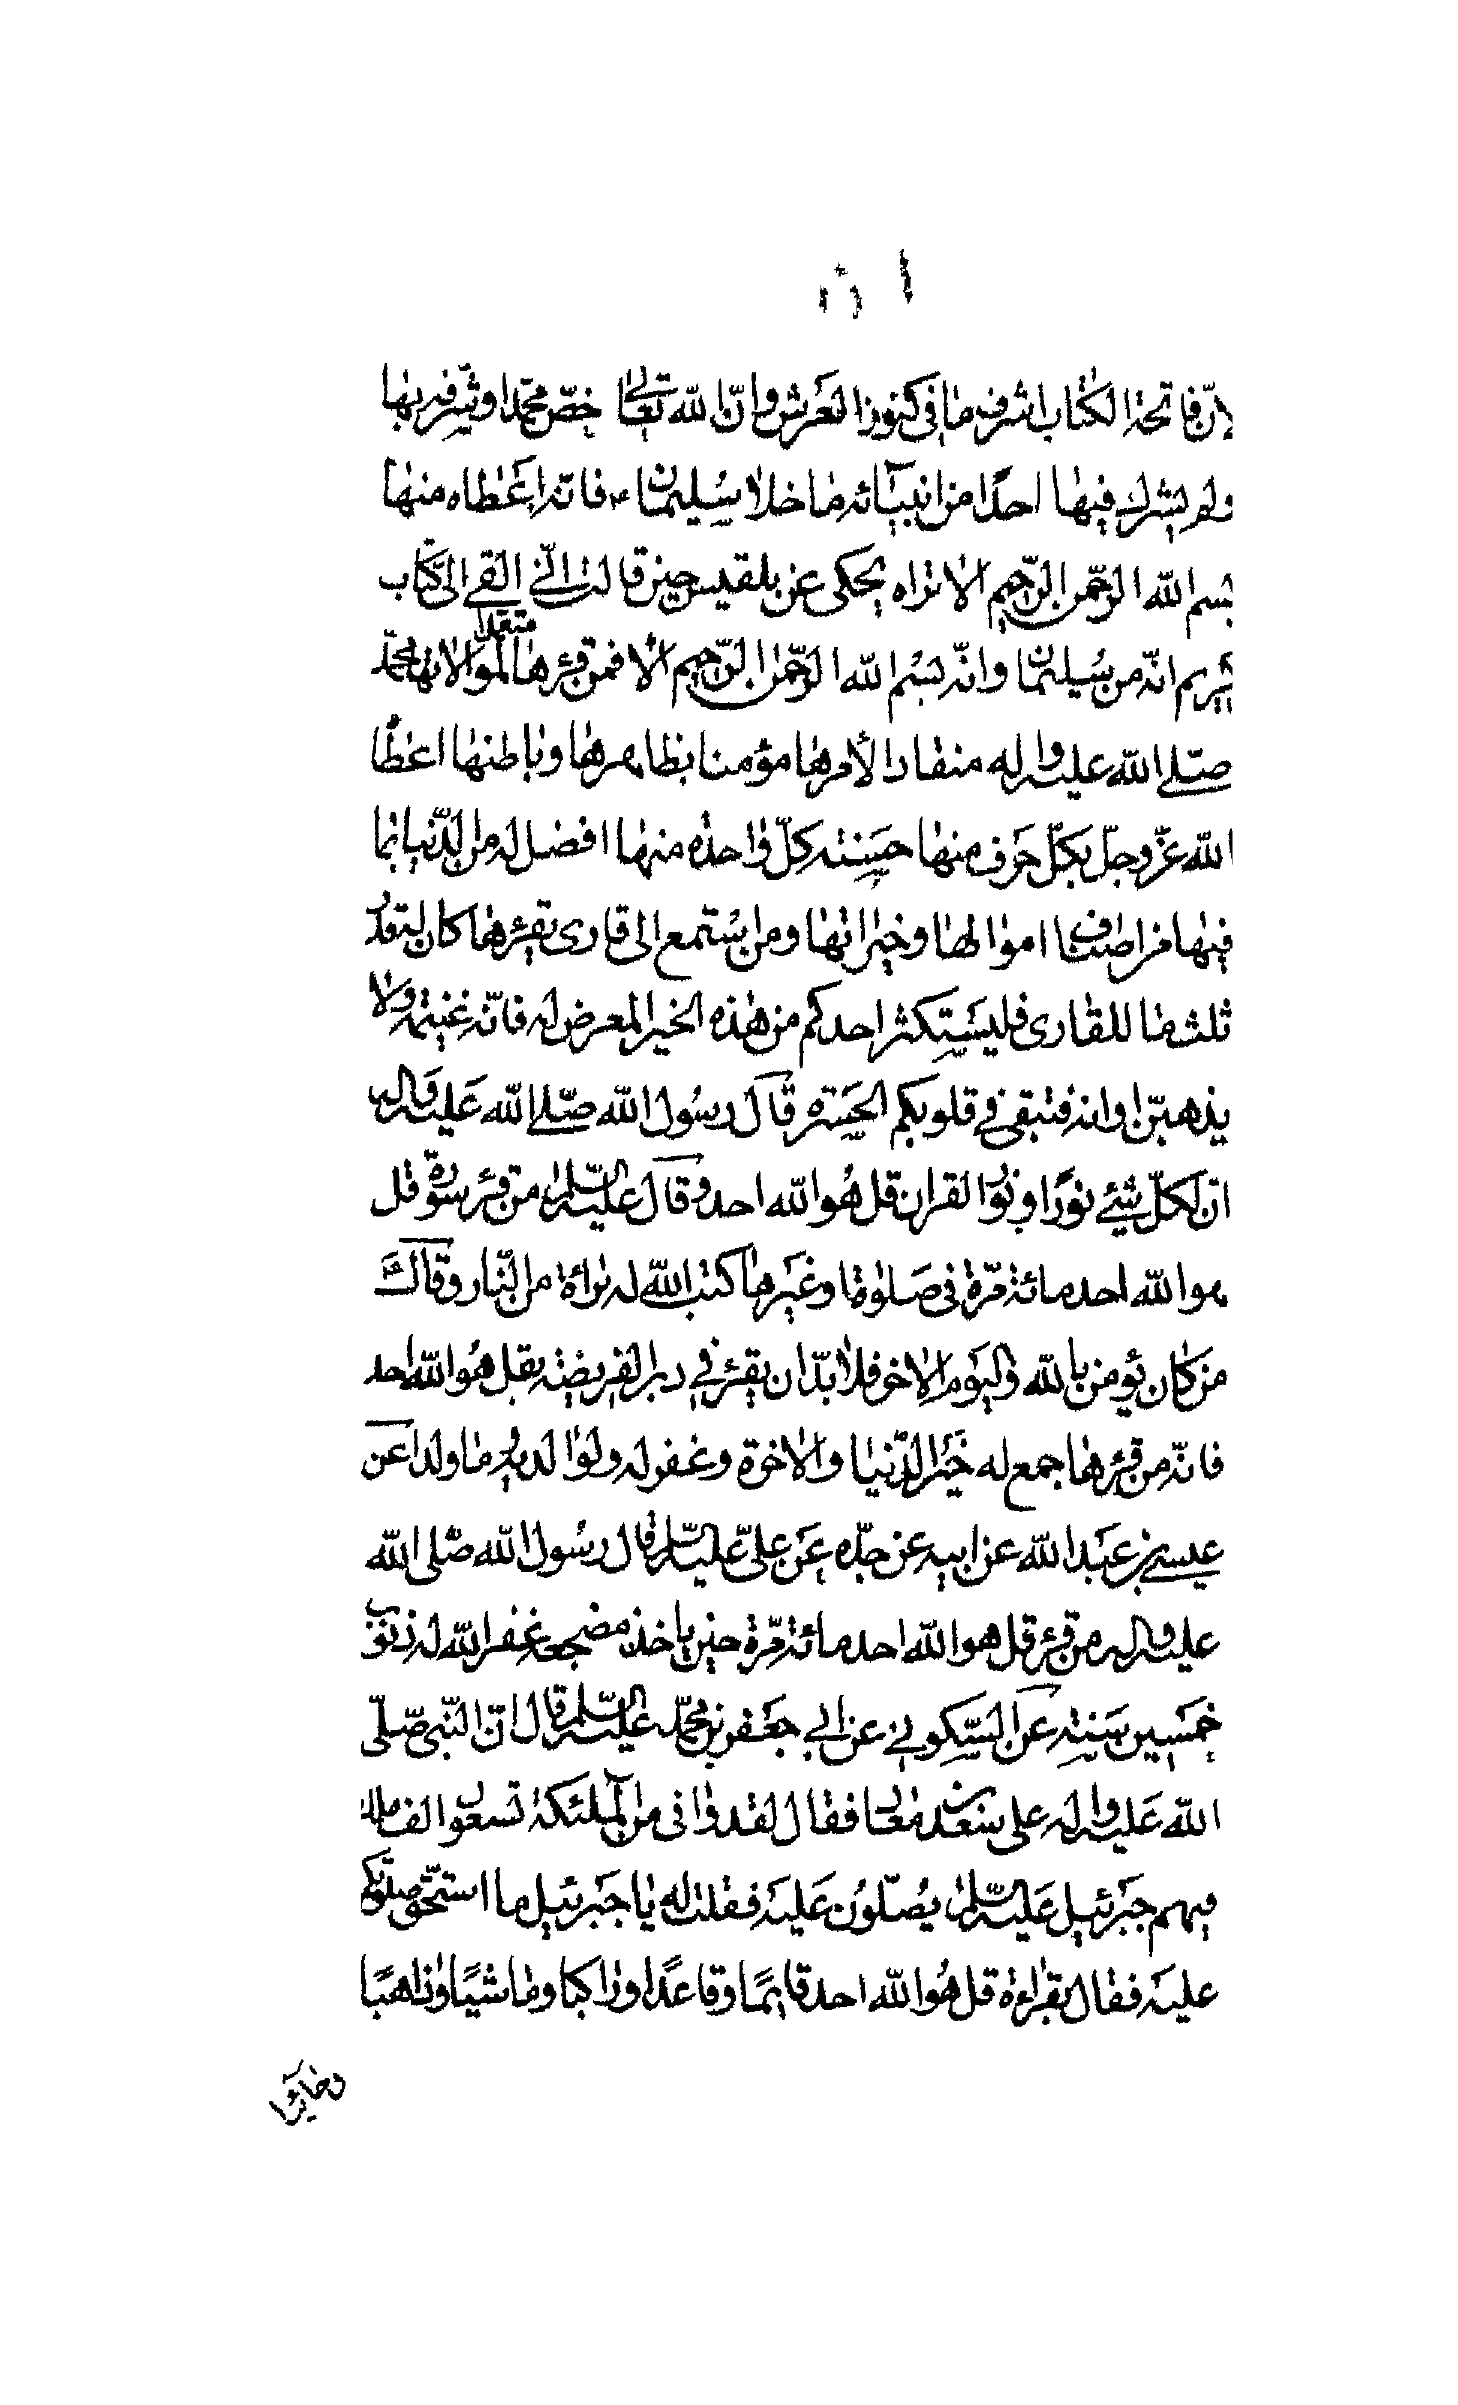 لانّ فاتحة الكتاب اشرف ما فى كنوز العرش وانّ الله تعالى خصّ محمّدا وشرّفه بها
ولم يشرك فيها احدًا من انبيآئه ما خلا سليمان ع فانه اعطاه منها
بسم الله الرّحمن الرّحيم الا تراه يحكى عن بلقيس حين قالت انّى القى الىّ كتاب
كريم انّه من سليمان وانّه بسم الله الرّحمن الرّحيم الا فمن قرئها متقلدا لموالاة محمّد
صلّى الله عليه واله منقادا لأمرها مؤمنا بظاهرها وباطنها اعطاه
الله عزّ وجلّ بكلّ حرف منها حسنة كلّ واحدة منها افضل له من الدّنيا بما
فيها من اصناف اموالها وخيراتها ومن استمع الى قارى يقرئها كان له بقدر
ثلث ما للقارى فليستكثر احدكم من هذه الخير المعرض له فانّه غنيمة ولا
يذهبنّ اوانه فتبقى فى قلوبكم الحسرة قال رسول الله صلّى الله عليه واله
انّ لكلّ شيئ نورًا ونور القران قل هو الله احد وقال عليه السّلام من قرئ سورة قل
هو الله احد مائة مرّة فى صلوة او غيرها كتب الله له برائة من النّار وقال ع
من كان يؤمن بالله واليوم الاخر فلا بدّ ان يقرئ فى دبر الفريضة بقل هو الله احد
فانّه من قرئها جمع له خير الدّنيا والاخرة وغفر له ولوالديه وما ولدا عن
عيسى بن عبد الله عن ابيه عن جدّه عن علىّ عليه السّلام قال رسول الله صلّى الله
عليه واله من قرئ قل هو الله احد مائة مرّة حين ياخذ مضجعه غفر الله له ذنوب
خمسين سنة عن السّكونى عن ابى جعفر بن محمّد عليه السّلام قال انّ النّبى صلّى
الله عليه واله على سعد بن معاذ فقال لقد وافى من الملئكة تسعون الف ملك
فيهم جبرئيل عليه السّلام يصلّون عليه فقلت له يا جبرئيل ما استحقّ صلوتكم
عليه فقال بقراءة قل هو الله احد قائمًا وقاعدًا وراكبا وماشيًا وذاهبًا
وجآئيا